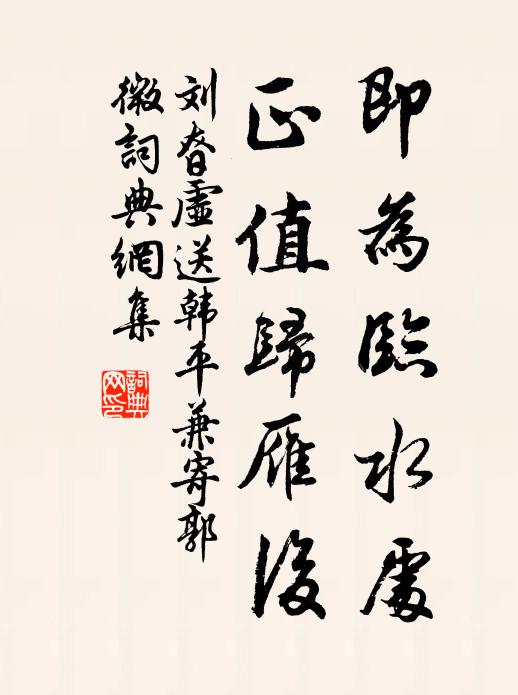 即為臨水處
正值歸雁後
刘昚虛送韩平兼寄郭
微詞典網集
詞典网印